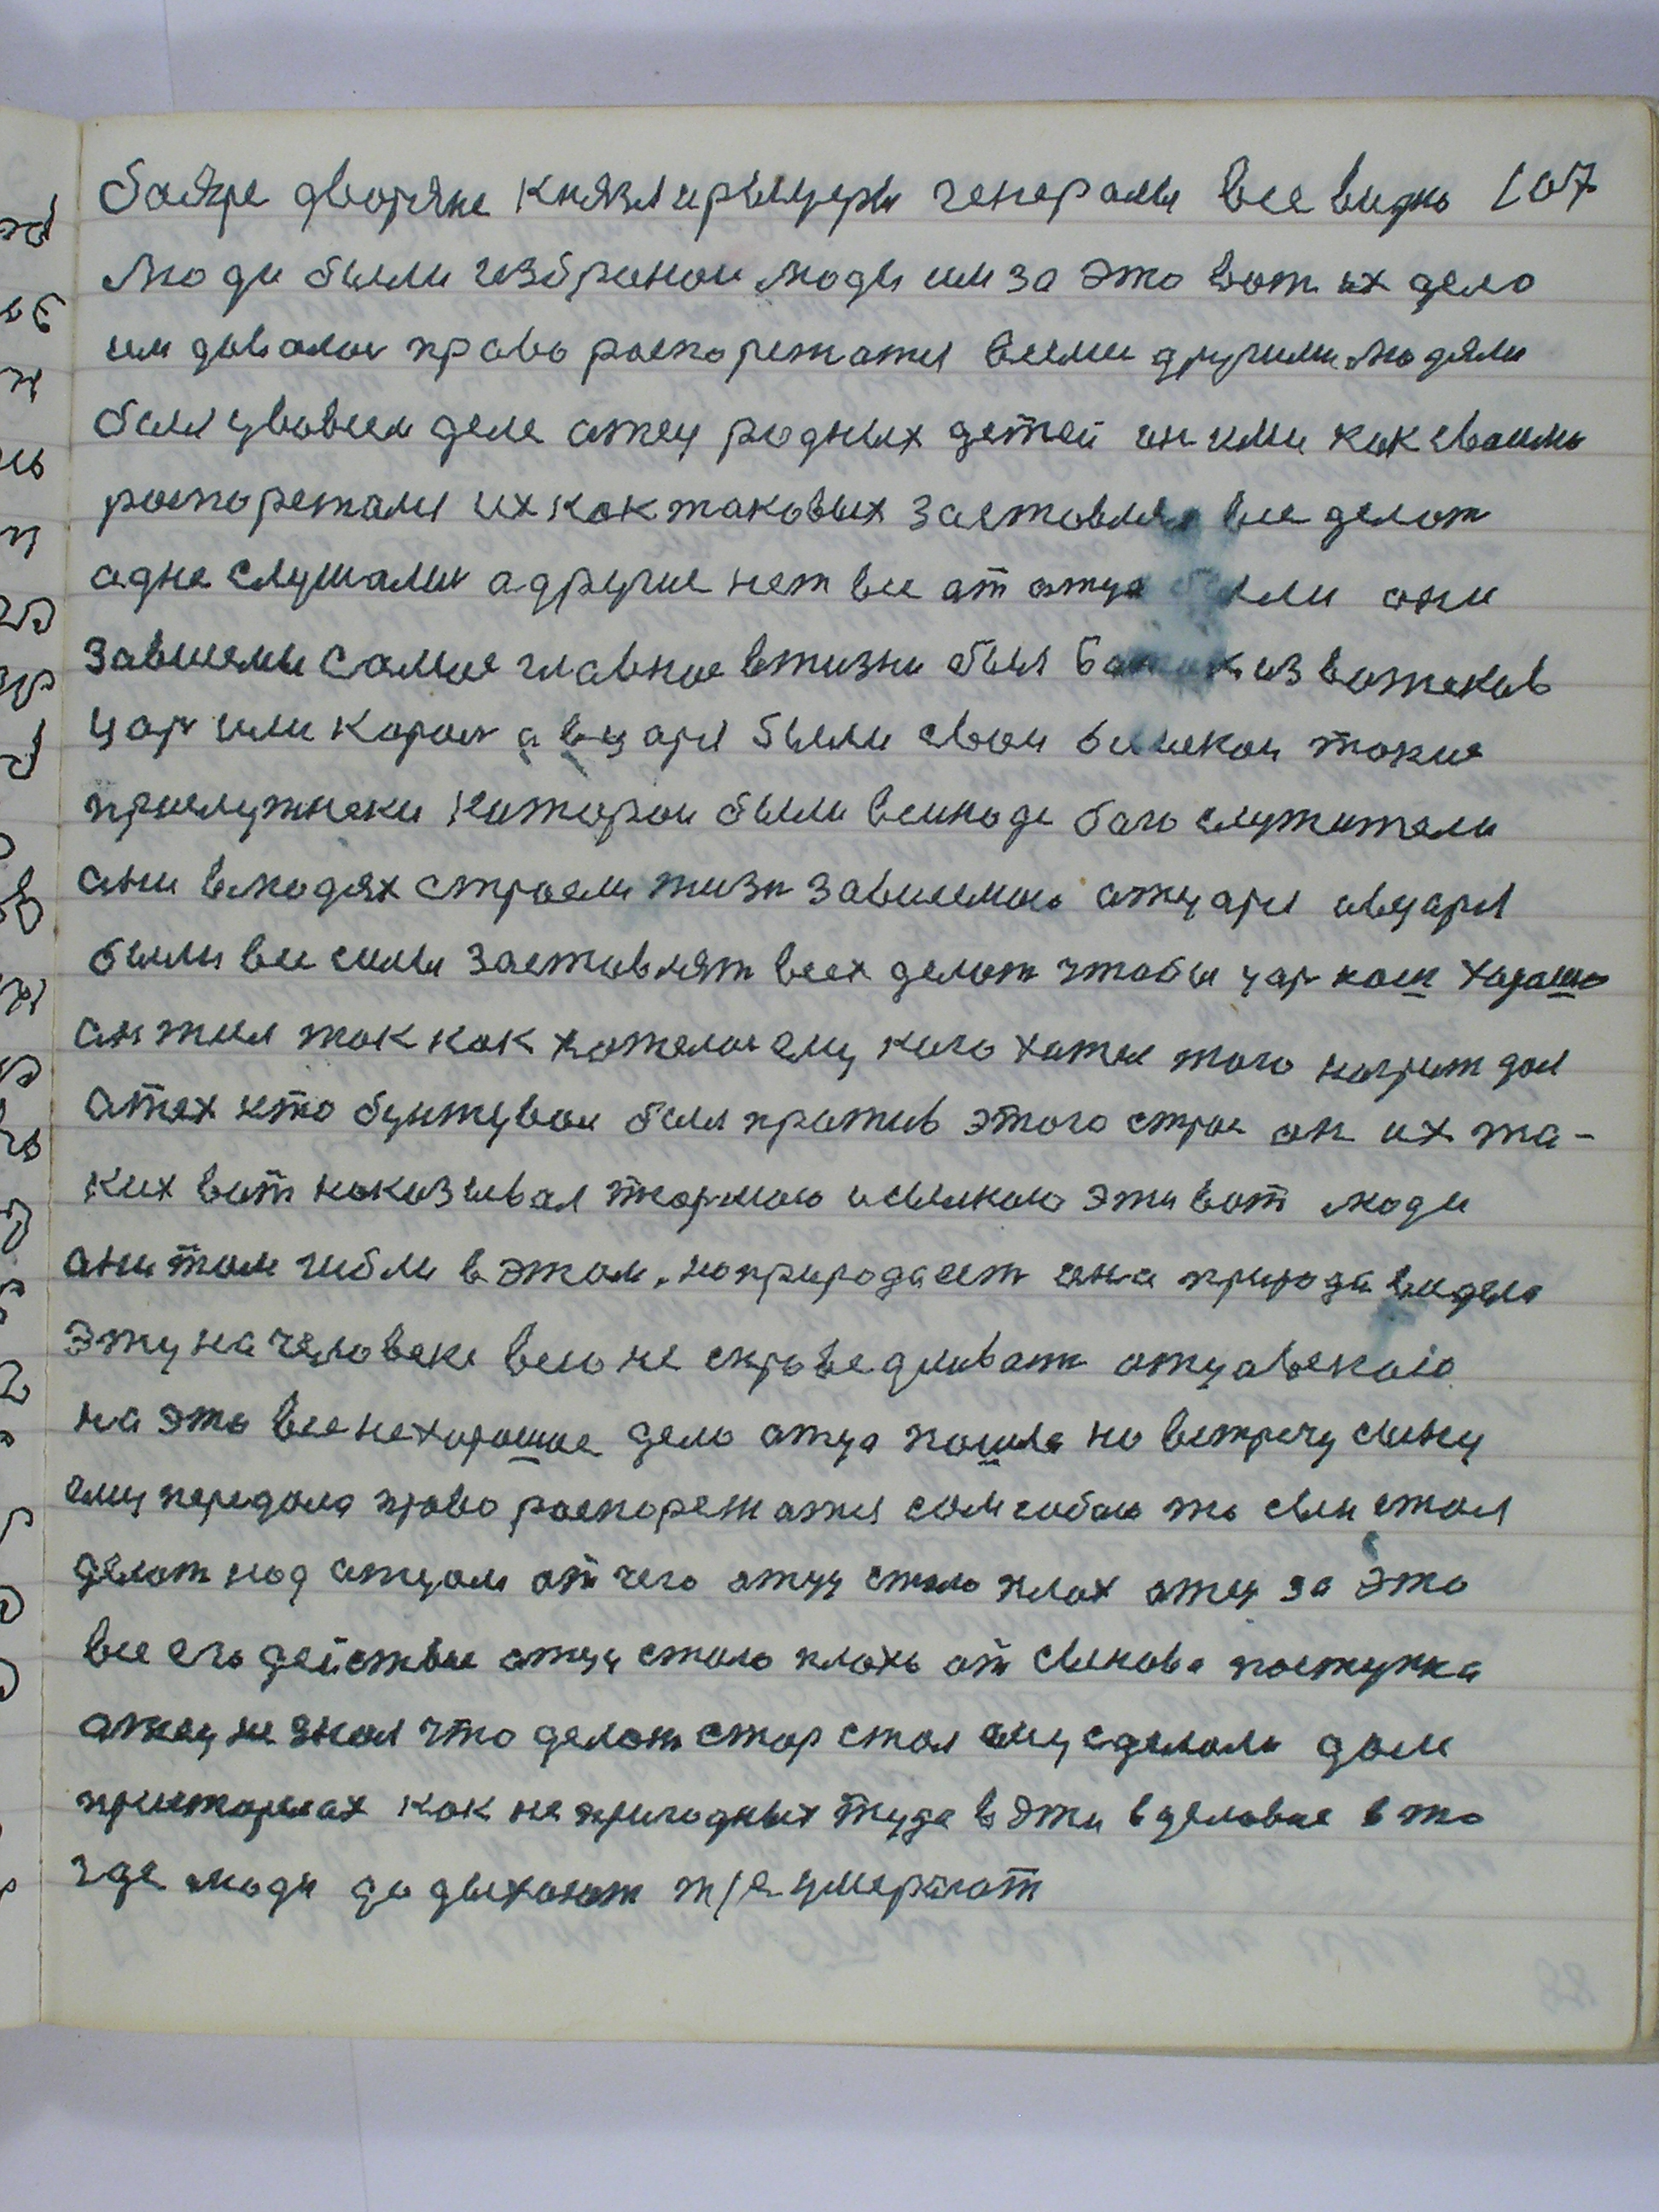 баяре дворяне князя и рыцеры генералы все видно 107
люди были избраной люди им за это вот их дело
им давалос право роспорежатся всеми другими людями
был увовсем деле отец родных детей он ими как своими
роспорежался их как таковых заставлял все делот
адне слушалис а другие нет все ат отца были они
зависемы самое главное вжизни был важак из вожаков
цар или корол а вцаря были свои близкои такие
прислужнеки которои были всиноде богослужители
они влюдях строели жизн зависемою отцаря авцаря
были все силы заставлят всех делот чтобы цар наш харашо
он жил ток как хотелос ему кого хотел того награждал
а тех кто бунтувал был против этого строя он их та-
ких вот наказывал тюрмою исылкою эти вот люди
они там гибли в этом. но природа ест она природа видела
эту на человеке всю не справедливаст отцовскою
на это все нехорошое дело отца пошла на встречу сыну
ему передала право роспорежатся сам собою то сын стал
делат над отцом от чего отцу стало плох отец за это
все его действие отцу стало плохо от сынова поступка
отец не знал что делат стар стал ему сделали дом
пристарелах как не пригодных туда в эти вделовые в то
где люди додыхают т/е умерают